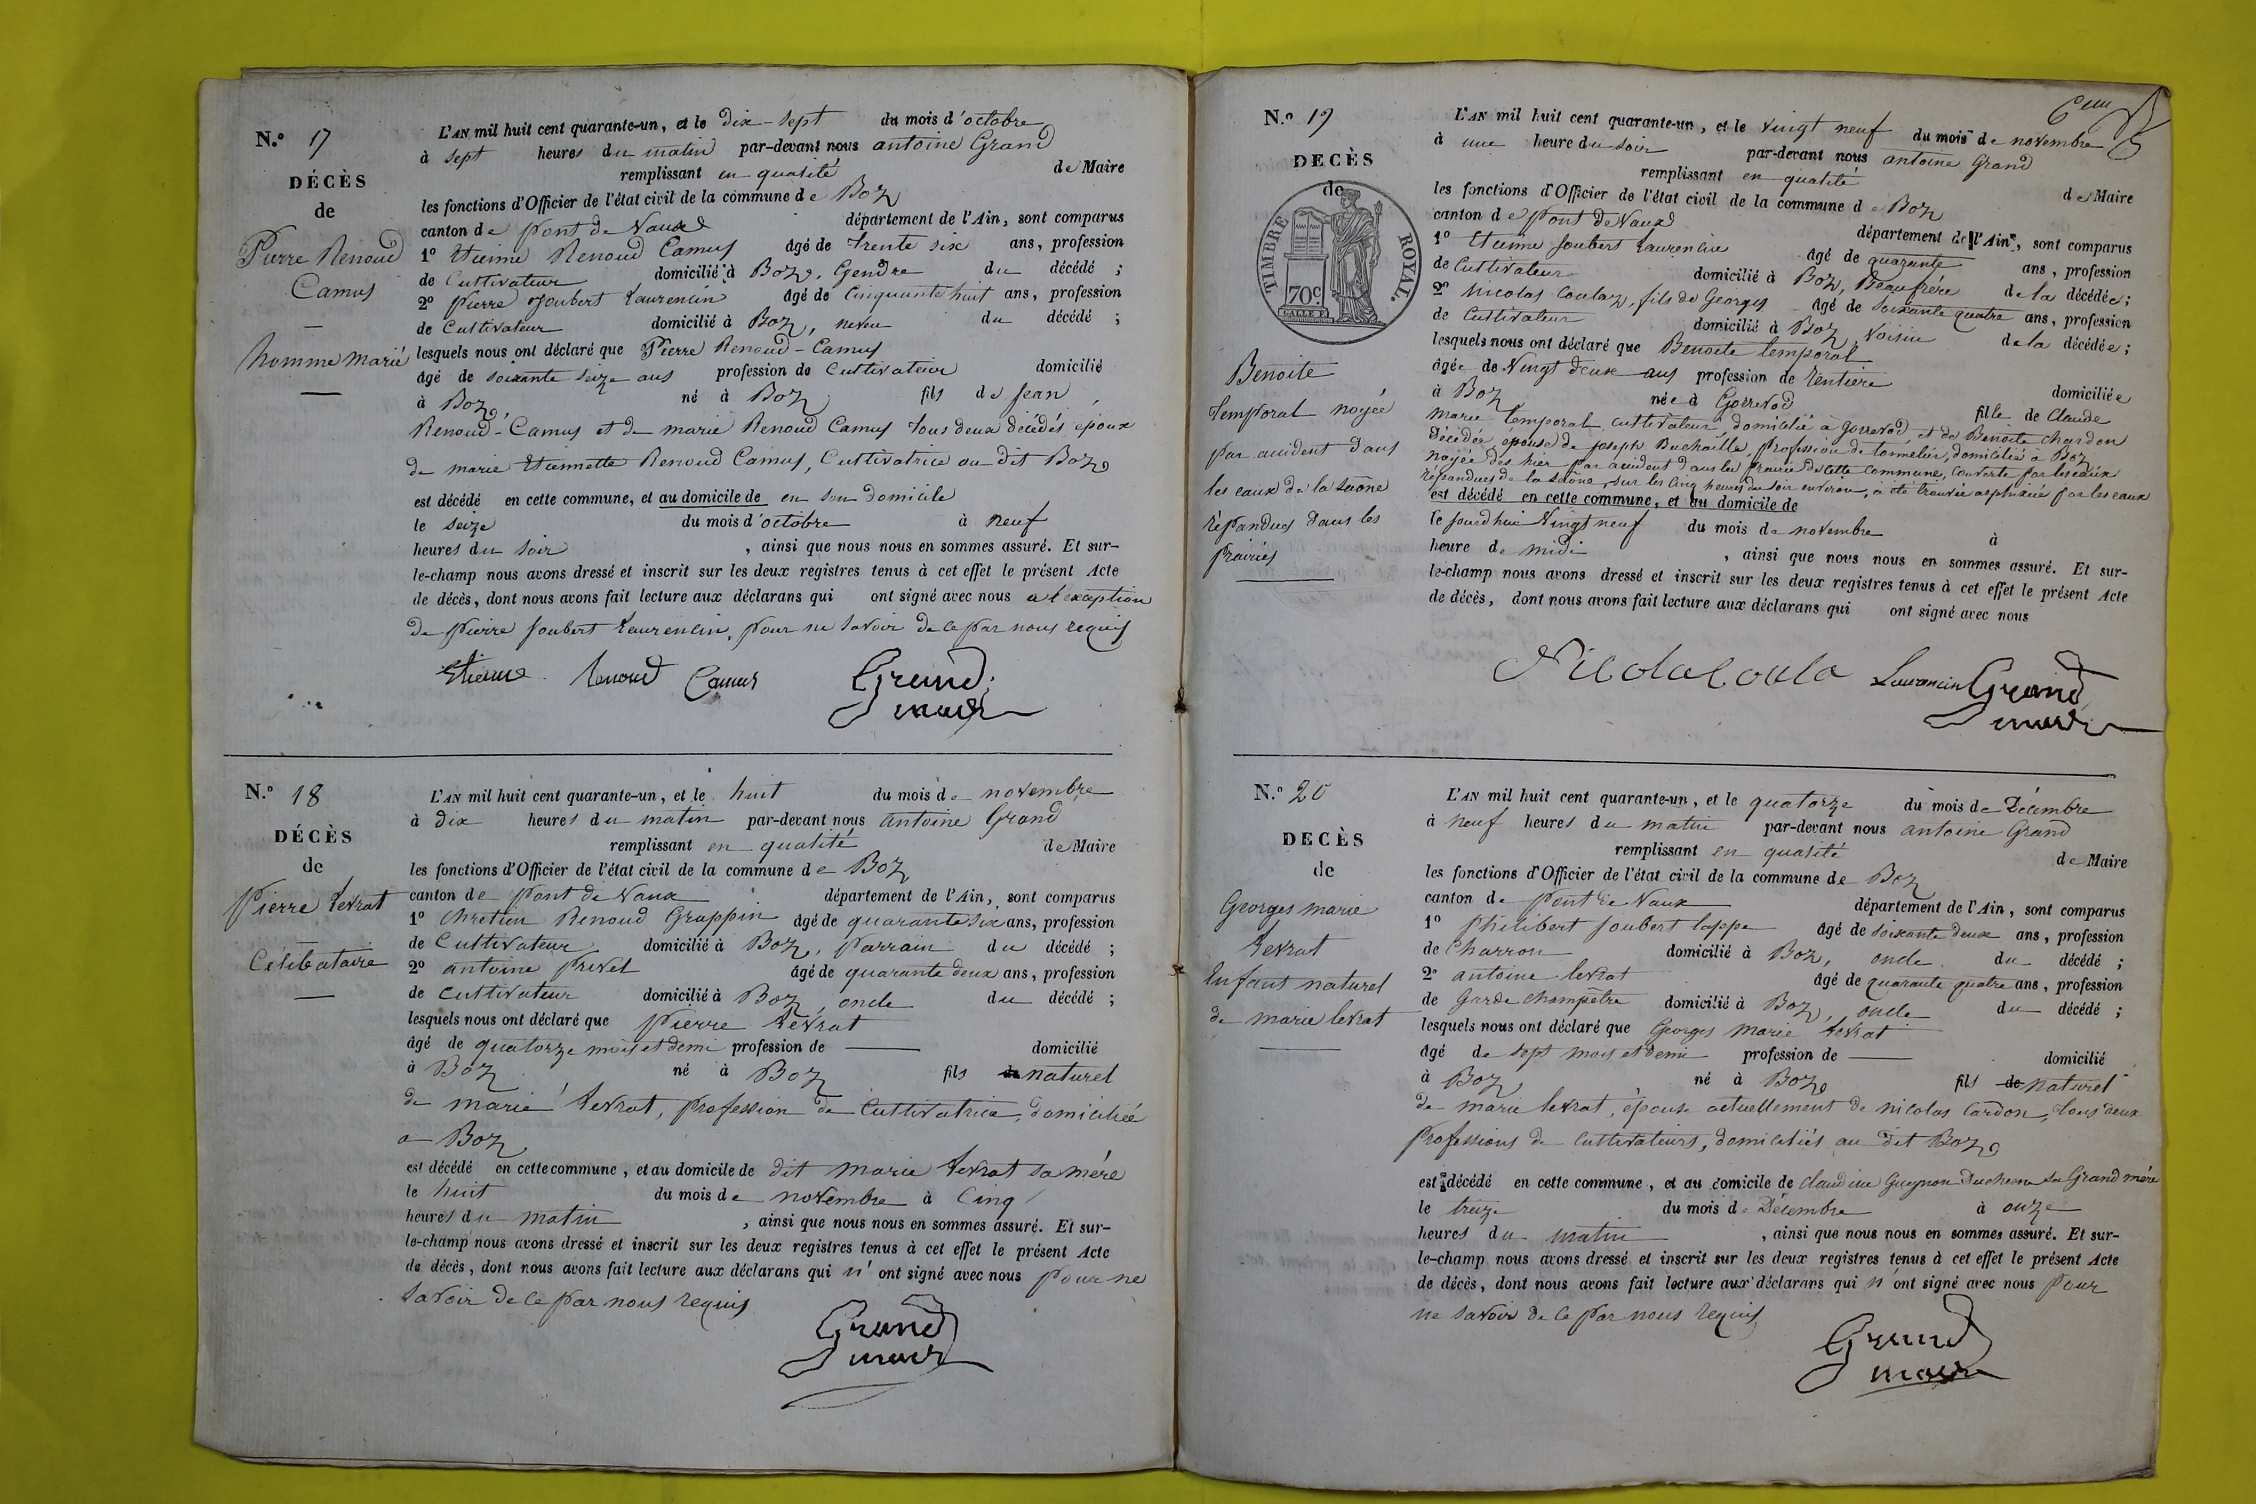 N.º 17
DÉCÈS
de
Pierre Renoud
Camus
homme marié
L'AN mil huit cent quarante-un, et le dix-sept du mois d'octobre
à sept heures du matin par-devant nous antoine Grand
remplissant en qualité de Maire
les fonctions d'Officier de l'état civil de la commune de Boz
canton de pont de Vaux département de l'Ain, sont comparus
1º Etienne Renoud Camus âgé de trente six ans, profession
de Cultivateur domicilié à Boz, Gendre du décédé ;
2º pierre Joubert Laurencin âgé de Cinquante huit ans, profession
de Cultivateur domicilié à Boz, neveu du décédé ;
lesquels nous ont déclaré que Pierre Renoud-Camus
âgé de soixante seize ans profession de Cultivateur domicilié
à Boz, né à Boz fils de Jean
Renoud-Camus et de marie Renoud Camus tous deux décédés époux
de marie Etiennette Renoud Camus, Cultivatrice au dit Boz
est décédé en cette commune, et au domicile de en son domicile
le seize du mois d'octobre à neuf
heures du soir , ainsi que nous nous en sommes assuré. Et sur-
le-champ nous avons dressé et inscrit sur les deux registres tenus à cet effet le présent Acte
de décès, dont nous avons fait lecture aux déclarans qui ont signé avec nous a l'exception
de pierre Joubert Laurencin, pour ne savoir de ce par nous requis
Etienne Renoud Camus Grand
maire
N.º 18
DÉCÈS
de
Pierre Levrat
Célibataire
L'AN mil huit cent quarante-un, et le huit du mois de novembre
à dix heures du matin par-devant nous antoine Grand
remplissant en qualité de Maire
les fonctions d'Officier de l'état civil de la commune de Boz
canton de pont de Vaux département de l'Ain, sont comparus
1º Chretien Renoud Grappin âgé de quarante six ans, profession
de Cultivateur domicilié à Boz, parrain du décédé ;
2º antoine Prevel âgé de quarante deux ans, profession
de Cultivateur domicilié à Boz, oncle du décédé ;
lesquels nous ont déclaré que pierre Levrat
âgé de quatorze mois et demi profession de domicilié
à Boz né à Boz fils de naturel
de marie Levrat, profession de Cultivatrice, domiciliée
a Boz
est décédé en cette commune, et au domicile de dit marie Levrat sa mère
le huit du mois de novembre à Cinq
heures du matin , ainsi que nous nous en sommes assuré. Et sur-
le-champ nous avons dressé et inscrit sur les deux registres tenus à cet effet le présent Acte
de décès, dont nous avons fait lecture aux déclarans qui n'ont signé avec nous pour ne
savoir de ce par nous requis
Grand
maire
N.º 19
DECÈS
de
TIMBRE ROYAL.
70c.
Benoite
Temporal noyée
par accident dans
les eaux de la saône
répandues dans les
prairies
L'AN mil huit cent quarante-un, et le vingt neuf du mois de novembre
à une heure du soir par-devant nous antoine Grand
remplissant en qualité de Maire
les fonctions d'Officier de l'état civil de la commune de Boz
canton de pont de Vaux département de l'Ain, sont comparus
1º Etienne Joubert Laurencin âgé de quarante ans, profession
de Cultivateur domicilié à Boz, Beaufrère de la décédée ;
2º Nicolas Coulaz, fils de Georges âgé de soixante quatre ans, profession
de Cultivateur domicilié à Boz, Voisin de la décédée ;
lesquels nous ont déclaré que Benoite temporal
âgée de Vingt deux ans profession de rentière domiciliée
à Boz née à Gorrevod fille de Claude
marie temporal cultivateur domicilié à Gorrevod, et de Benoite Chardon
Décédée, épouse de joseph Buchaille, profession de tonnelier, domicilié à Boz
noyée dès hier par accident dans les prairies de cette Commune, Couverte par les eaux
répandues de la saône, sur les Cinq heures du soir environ, a été trouvée asphixiée par les eaux
est décédé en cette commune, et au domicile de
le jourdhui Vingt neuf du mois de novembre à
heure de midi , ainsi que nous nous en sommes assuré. Et sur-
le-champ nous avons dressé et inscrit sur les deux registres tenus à cet effet le présent Acte
de décès, dont nous avons fait lecture aux déclarans qui ont signé avec nous
Nicolacoula Laurencin Grand
maire
N.º 20
DECÈS
de
Georges marie
Levrat
Enfant naturel
de marie levrat
L'AN mil huit cent quarante-un, et le quatorze du mois de Décembre
à neuf heures du matin par-devant nous antoine Grand
remplissant en qualité de Maire
les fonctions d'Officier de l'état civil de la commune de Boz
canton de pont de Vaux département de l'Ain, sont comparus
1º philibert Joubert lappe âgé de soixante deux ans, profession
de Charron domicilié à Boz, oncle du décédé ;
2º antoine levrat âgé de quarante quatre ans, profession
de Garde champêtre domicilié à Boz, oncle du décédé ;
lesquels nous ont déclaré que Georges marie Levrat
âgé de sept mois et demi profession de domicilié
à Boz né à Boz fils de naturel
de marie levrat, épouse actuellement de nicolas Cardon, tous deux
professions de Cultivateurs, domiciliés au dit Boz
est décédé en cette commune, et au domicile de Claudine Guynon Ducheron sa Grand mère
le treize du mois de Décembre à onze
heures du matin , ainsi que nous nous en sommes assuré. Et sur-
le-champ nous avons dressé et inscrit sur les deux registres tenus à cet effet le présent Acte
de décès, dont nous avons fait lecture aux déclarans qui n'ont signé avec nous pour
ne savoir de ce par nous requis
Grand
maire